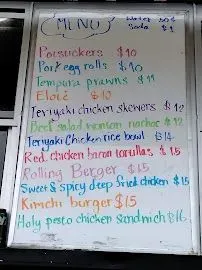 MENU
Water 50¢
Soda $1
Potstickers $10
Pork egg rolls $10
Tempura prawns $11
Elote $10
Teriyaki chicken skewers $12
Beef salad nachos $12
Teriyaki Chicken rice bowl $14
Red chicken bacon tortillas $15
Rolling Berger $15
Sweet & spicy deep fried chicken $15
Kimchi burger $15
Holy pesto chicken Sandwich $16